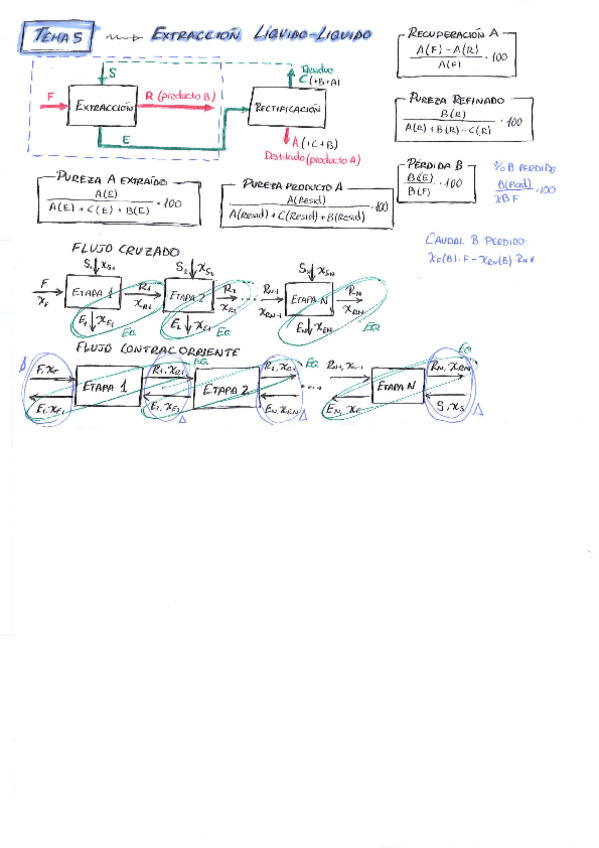 TEMA 5 → EXTRACCIÓN LÍQUIDO-LÍQUIDO
RECUPERACIÓN A
A(F) - A(R)
A(F)
· 100
S
Residuo
C (+B+A)
F
EXTRACCIÓN
R (producto B)
RECTIFICACIÓN
E
A (+C+B)
Destilado (producto A)
PUREZA REFINADO
B(R)
A(R) + B(R) - C(R)
· 100
PÉRDIDA B
B(E)
B(F)
· 100
% B PERDIDO
B(Resid)
xB F
· 100
PUREZA A EXTRAÍDO
A(E)
A(E) + C(E) + B(E)
· 100
PUREZA PRODUCTO A
A(Resid)
A(Resid) + C(Resid) + B(Resid)
· 100
CAUDAL B PERDIDO:
FLUJO CRUZADO
F
xF
S1 xS1
ETAPA 1
R1
xR1
E1 xE1
EQ
S2 xS2
ETAPA 2
R2
E2
EQ
RN-1
xRN-1
ETAPA N
RN
xRN
EN xEN
EQ
FLUJO CONTRACORRIENTE
Δ
F, xF
E1, xE1
ETAPA 1
EQ
R1, xR1
E2, xE2
Δ
ETAPA 2
EQ
Δ
ETAPA N
EQ
RN, xRN
S, xS
Δ